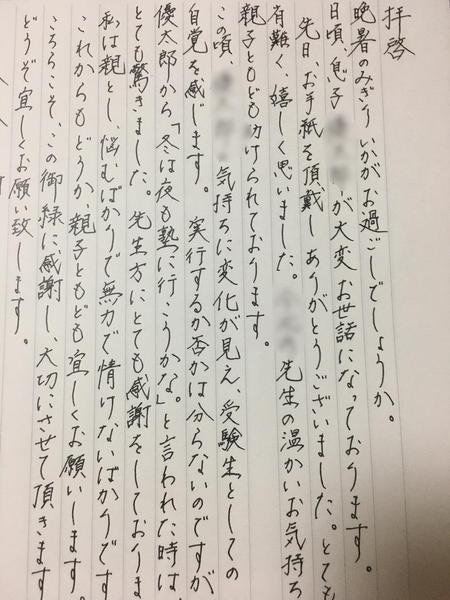 拝啓
晩暑のみぎり いかがお過ごしでしょうか。
日頃、息子 が大変お世話になっております。
先日、お手紙を頂戴しありがとうございました。とても
有難く、嬉しく思いました。 先生の温かいお気持ち
親子ともども助けられております。
この頃、 気持ちに変化が見え、受験生としての
自覚を感じます。 実行するか否かは分らないのですが
優太郎から「冬は夜も塾に行こうかな。」と言われた時は
とても驚きました。先生方にとても感謝をしておりま
私は親とし、悩むばかりで無力で情けないばかりです
これからもどうか、親子ともども宜しくお願いします。
こちらこそ、この御縁に感謝し、大切にさせて頂きます
どうぞ宜しくお願い致します。